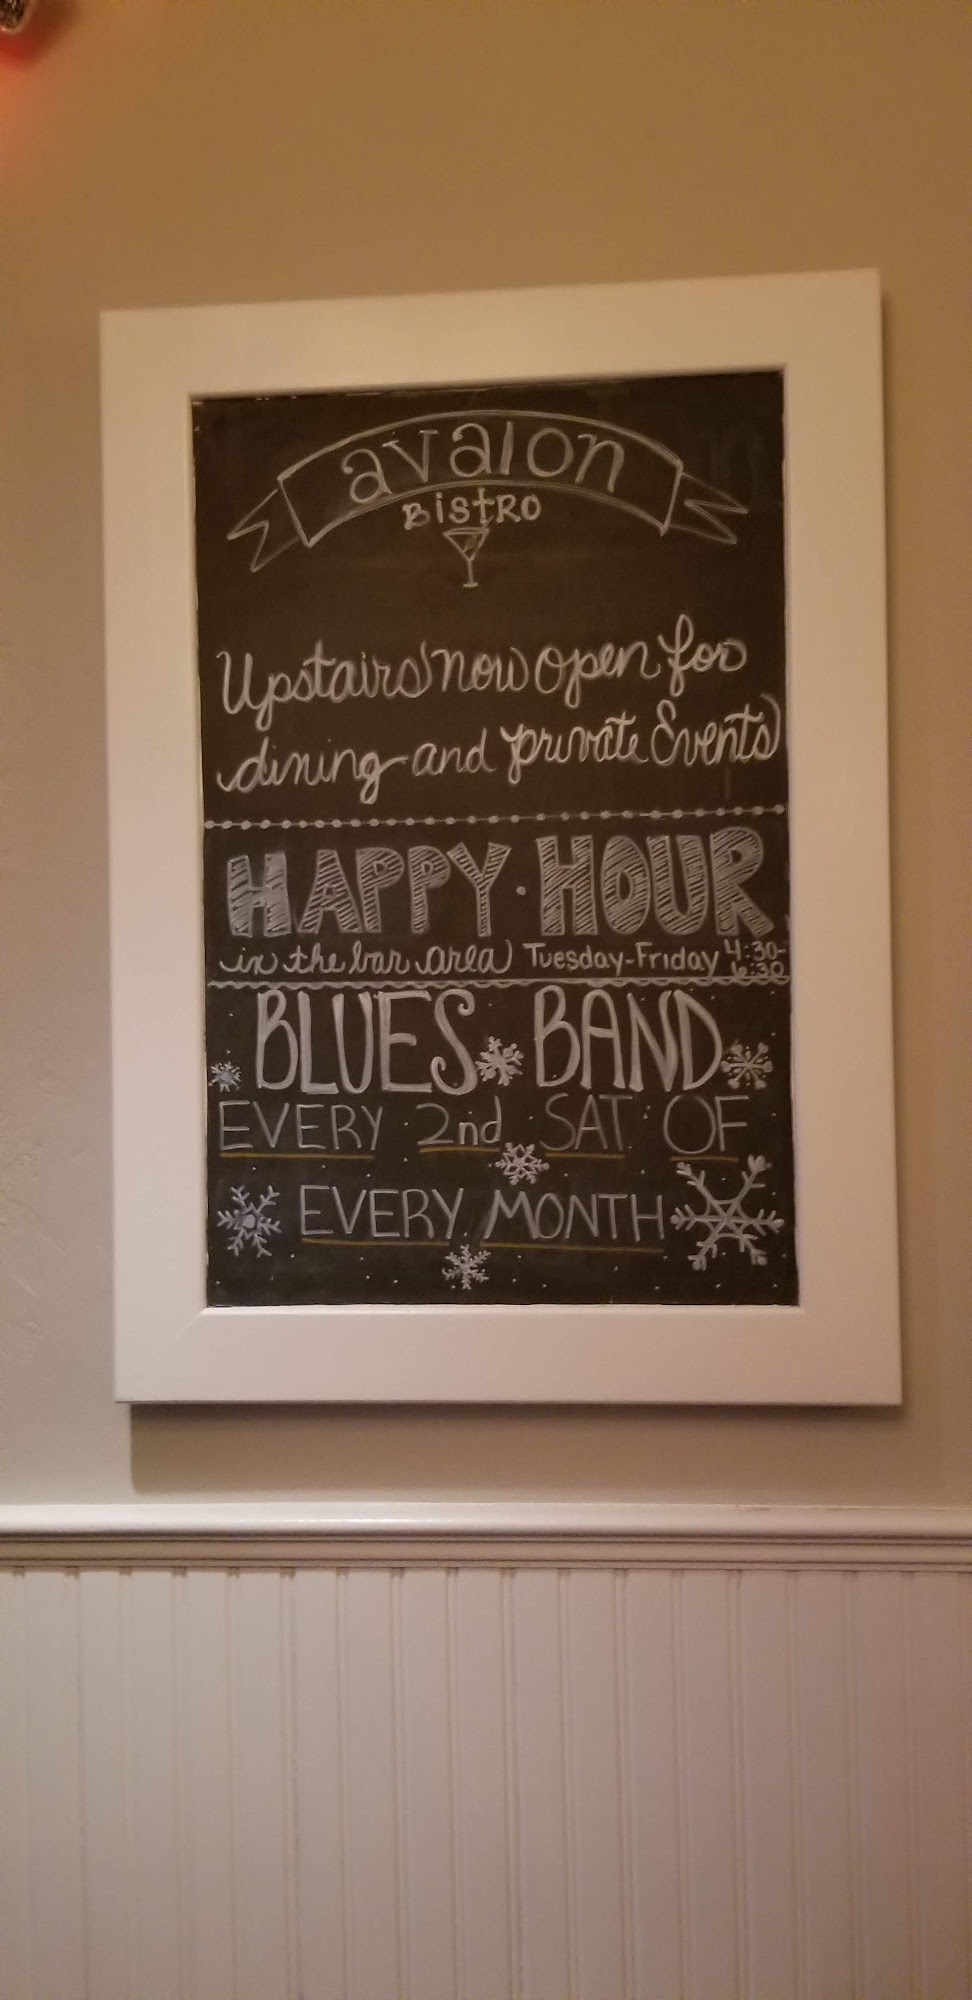 avalon
BistRO
Upstairs now open for
dining and private Events
HAPPY · HOUR
in the bar area Tuesday-Friday 4:30-
6:30
BLUES BAND
EVERY 2nd SAT OF
EVERY MONTH